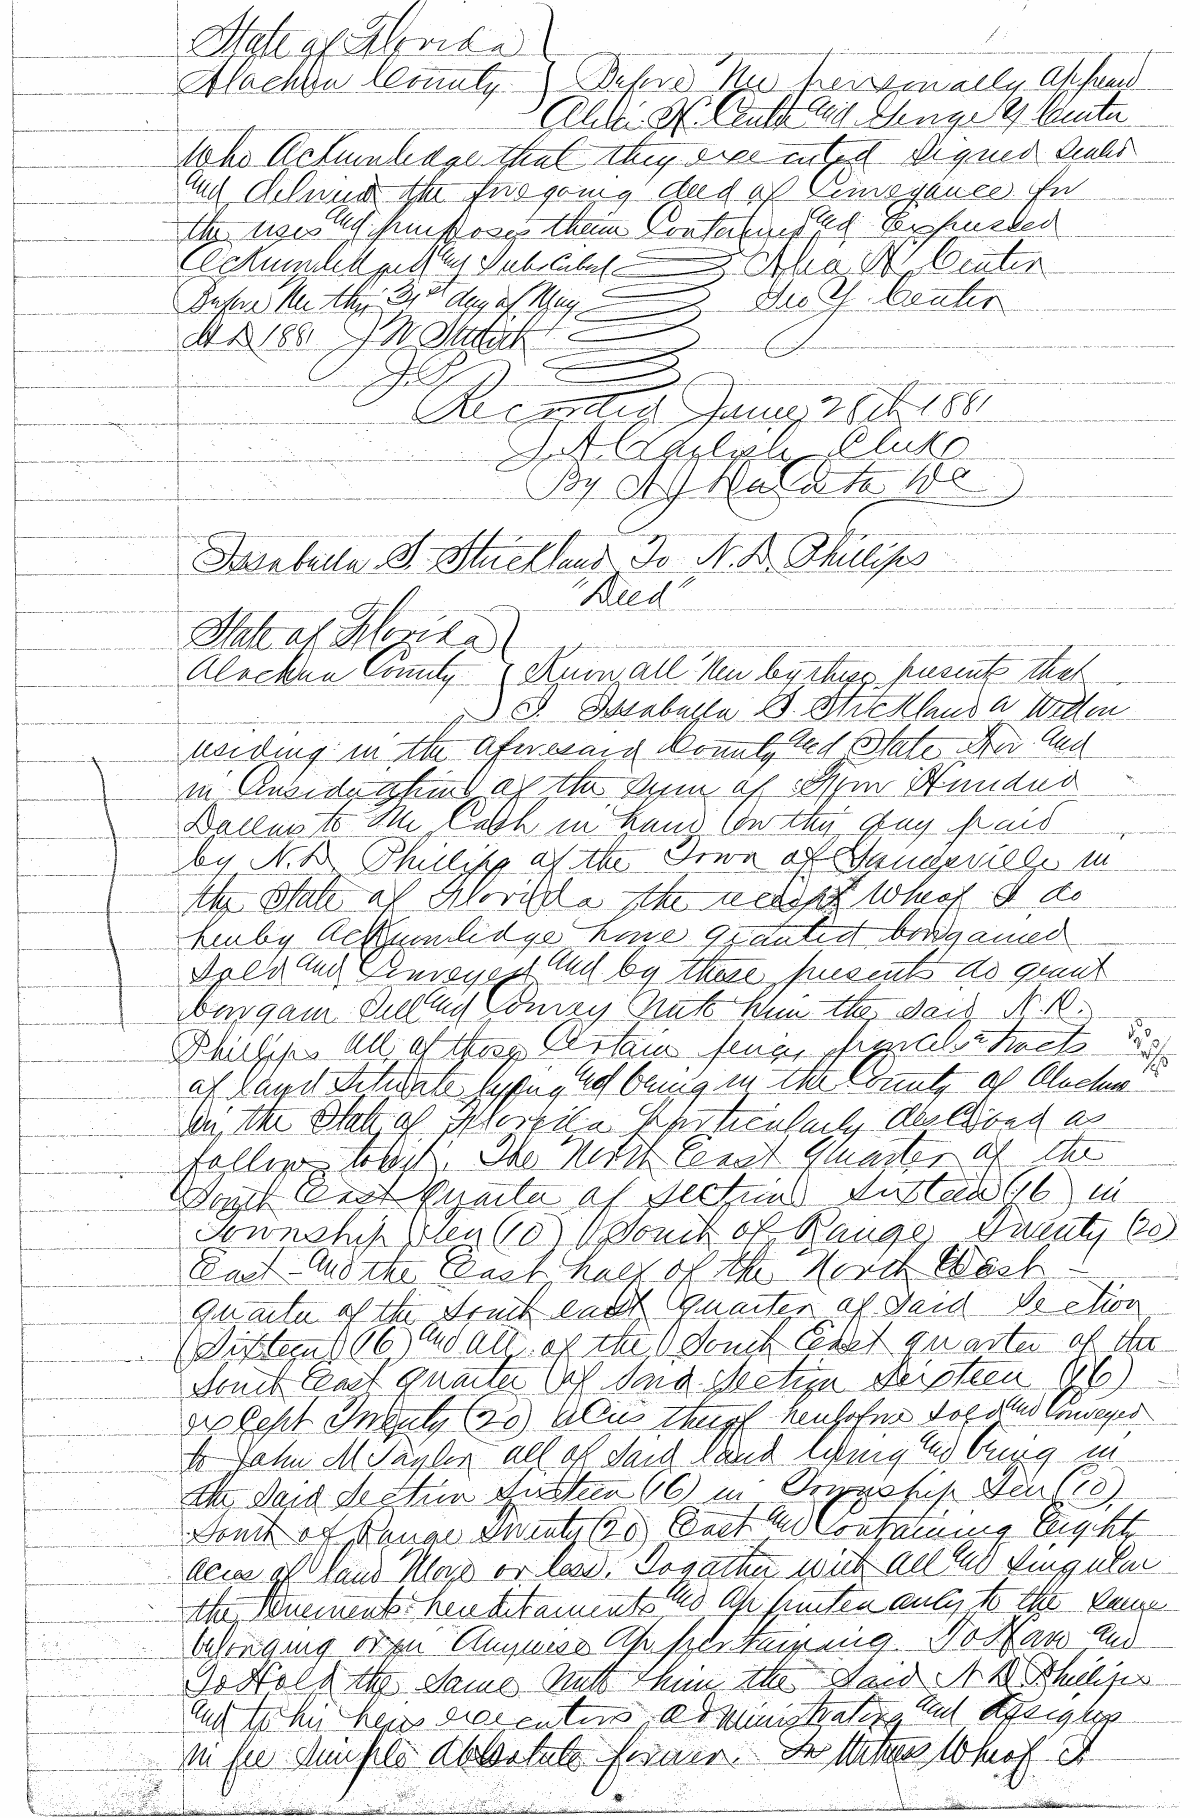 State of Florida
Alachua County } Before Me personally appeared
H. Center and George Y Center
Who Acknowledge that they executed signed sealed
and delivered the foregoing deed of Conveyance for
the uses and purposes therein Contained and Expressed
Acknowledged and Subscribed H Center
Before Me this 31st day of May Geo Y. Center
A D 1881 J W
J.P.
Recorded June 28th 1881
J. A. Carlisle Clerk
By A J DaCosta DC
Issabella S. Strickland To N. D. Phillips
"Deed"
State of Florida
Alachua County } Know all Men by these presents that
I Issabella S. Strickland a Widow
residing in the aforesaid County and State for and
in Consideration of the sum of Hundred
Dollars to Me Cash in hand on this day paid
by N. D. Phillips of the Town of in
the State of Florida the receipt Whereof I do
hereby Acknowledge have granted bargained
sold and Conveyed and by these presents do grant
bargain Sell and Convey Unto him the said N. D.
Phillips all of those Certain parcels tracts
of land Situate lying and being in the County of Alachua
in the State of Florida particularly described as
follows towit. The North East Quarter of the
South East Quarter of Section Sixteen (16) in
Township Ten (10) South of Range Twenty (20)
East - And the East half of the North West -
quarter of the South east quarter of said Section
Sixteen (16) and all of the South East quarter of the
South East quarter of Said Section Sixteen (16)
except Twenty (20) acres thereof heretofore sold and Conveyed
to John M Taylor all of said land lying and being in
the said Section Sixteen (16) in Township Ten (10)
South of Range Twenty (20) East and Containing Eighty
acres of land More or less. Togather with all and singular
the tenements hereditaments and appurtenances to the same
belonging or in Anywise Appertaining. To Have and
To Hold the same Unto him the Said N D Phillips
and to his heirs executors administrators and Assigns
in fee simple Absolute forever. In Witness Whereof I